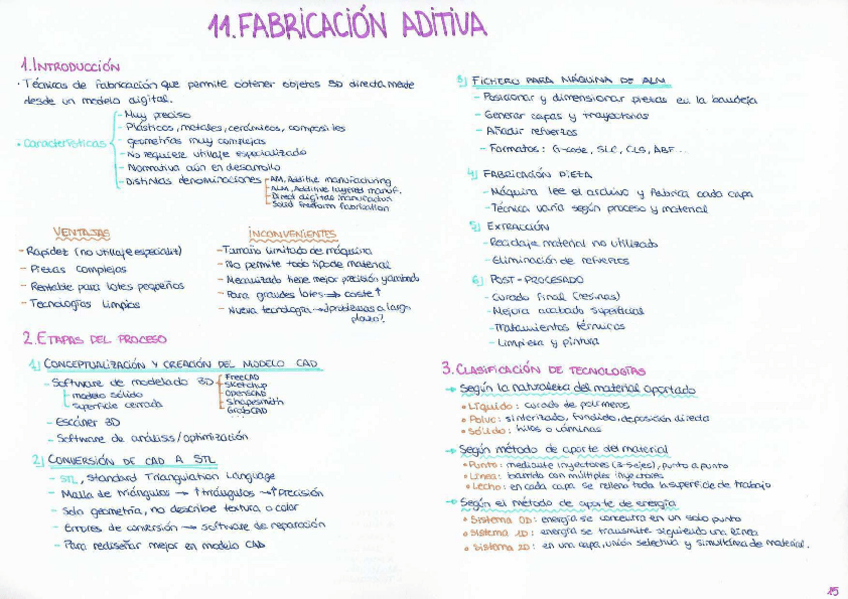 11. FABRICACIÓN ADITIVA
1. INTRODUCCIÓN
· Técnicas de fabricación que permite obtener objetos 3D directamente
desde un modelo digital.
· Características
- Muy preciso
- Plásticos, metales, cerámicos, composites
- geometrías muy complejas
- No requiere utillaje especializado
- Normativa aún en desarrollo
- Distintas denominaciones
- AM, Additive manufacturing
- ALM, Additive layered manuf.
- Direct digital manufactur
- Solid freeform fabrication
VENTAJAS
- Rapidez (no utillaje especialit)
- Piezas complejas
- Rentable para lotes pequeños
- Tecnologías limpias
INCONVENIENTES
- Tamaño limitado de máquina
- No permite todo tipo de material
- Mecanizado tiene mejor precisión y acabado
- Para grandes lotes → coste ↑
- Nueva tecnología → ¿problemas a largo
plazo?
2. ETAPAS DEL PROCESO
1) CONCEPTUALIZACIÓN Y CREACIÓN DEL MODELO CAD
- Software de modelado 3D
modelo sólido
superficie cerrada
- FreeCAD
- Sketchup
- OpenSCAD
- Shapesmith
- GrabCAD
- Escáner 3D
- Software de análisis/optimización
2) CONVERSIÓN DE CAD A STL
- STL, Standard Triangulation Language
- Malla de triángulos → ↑triángulos → ↑precisión
- Solo geometría, no describe textura o color
- Errores de conversión → software de reparación
- Para rediseñar mejor en modelo CAD
3) FICHERO PARA MÁQUINA DE ALM
- Posicionar y dimensionar piezas en la bandeja
- Generar capas y trayectorias
- Añadir refuerzos
- Formatos: G-code, SLC, CLS, ABF...
4) FABRICACIÓN PIEZA
- Máquina lee el archivo y fabrica cada capa
- Técnica varía según proceso y material
5) EXTRACCIÓN
- Reciclaje material no utilizado
- Eliminación de refuerzos
6) POST-PROCESADO
- Curado final (resinas)
- Mejora acabado superficial
- Tratamientos térmicos
- Limpieza y pintura
3. CLASIFICACIÓN DE TECNOLOGÍAS
→ Según la naturaleza del material aportado
• Líquido: curado de polímeros
• Polvo: sinterizado, fundido, deposición directa
• Sólido: hilos o láminas
→ Según método de aporte del material
• Punto: mediante inyectores (3-5ejes), punto a punto
• Línea: barrido con múltiples inyectores
• Lecho: en cada capa se rellena toda la superficie de trabajo
→ Según el método de aporte de energía
• Sistema 0D: energía se concentra en un solo punto
• Sistema 1D: energía se transmite siguiendo una línea
• Sistema 2D: en una capa, unión selectiva y simultánea de material.
15